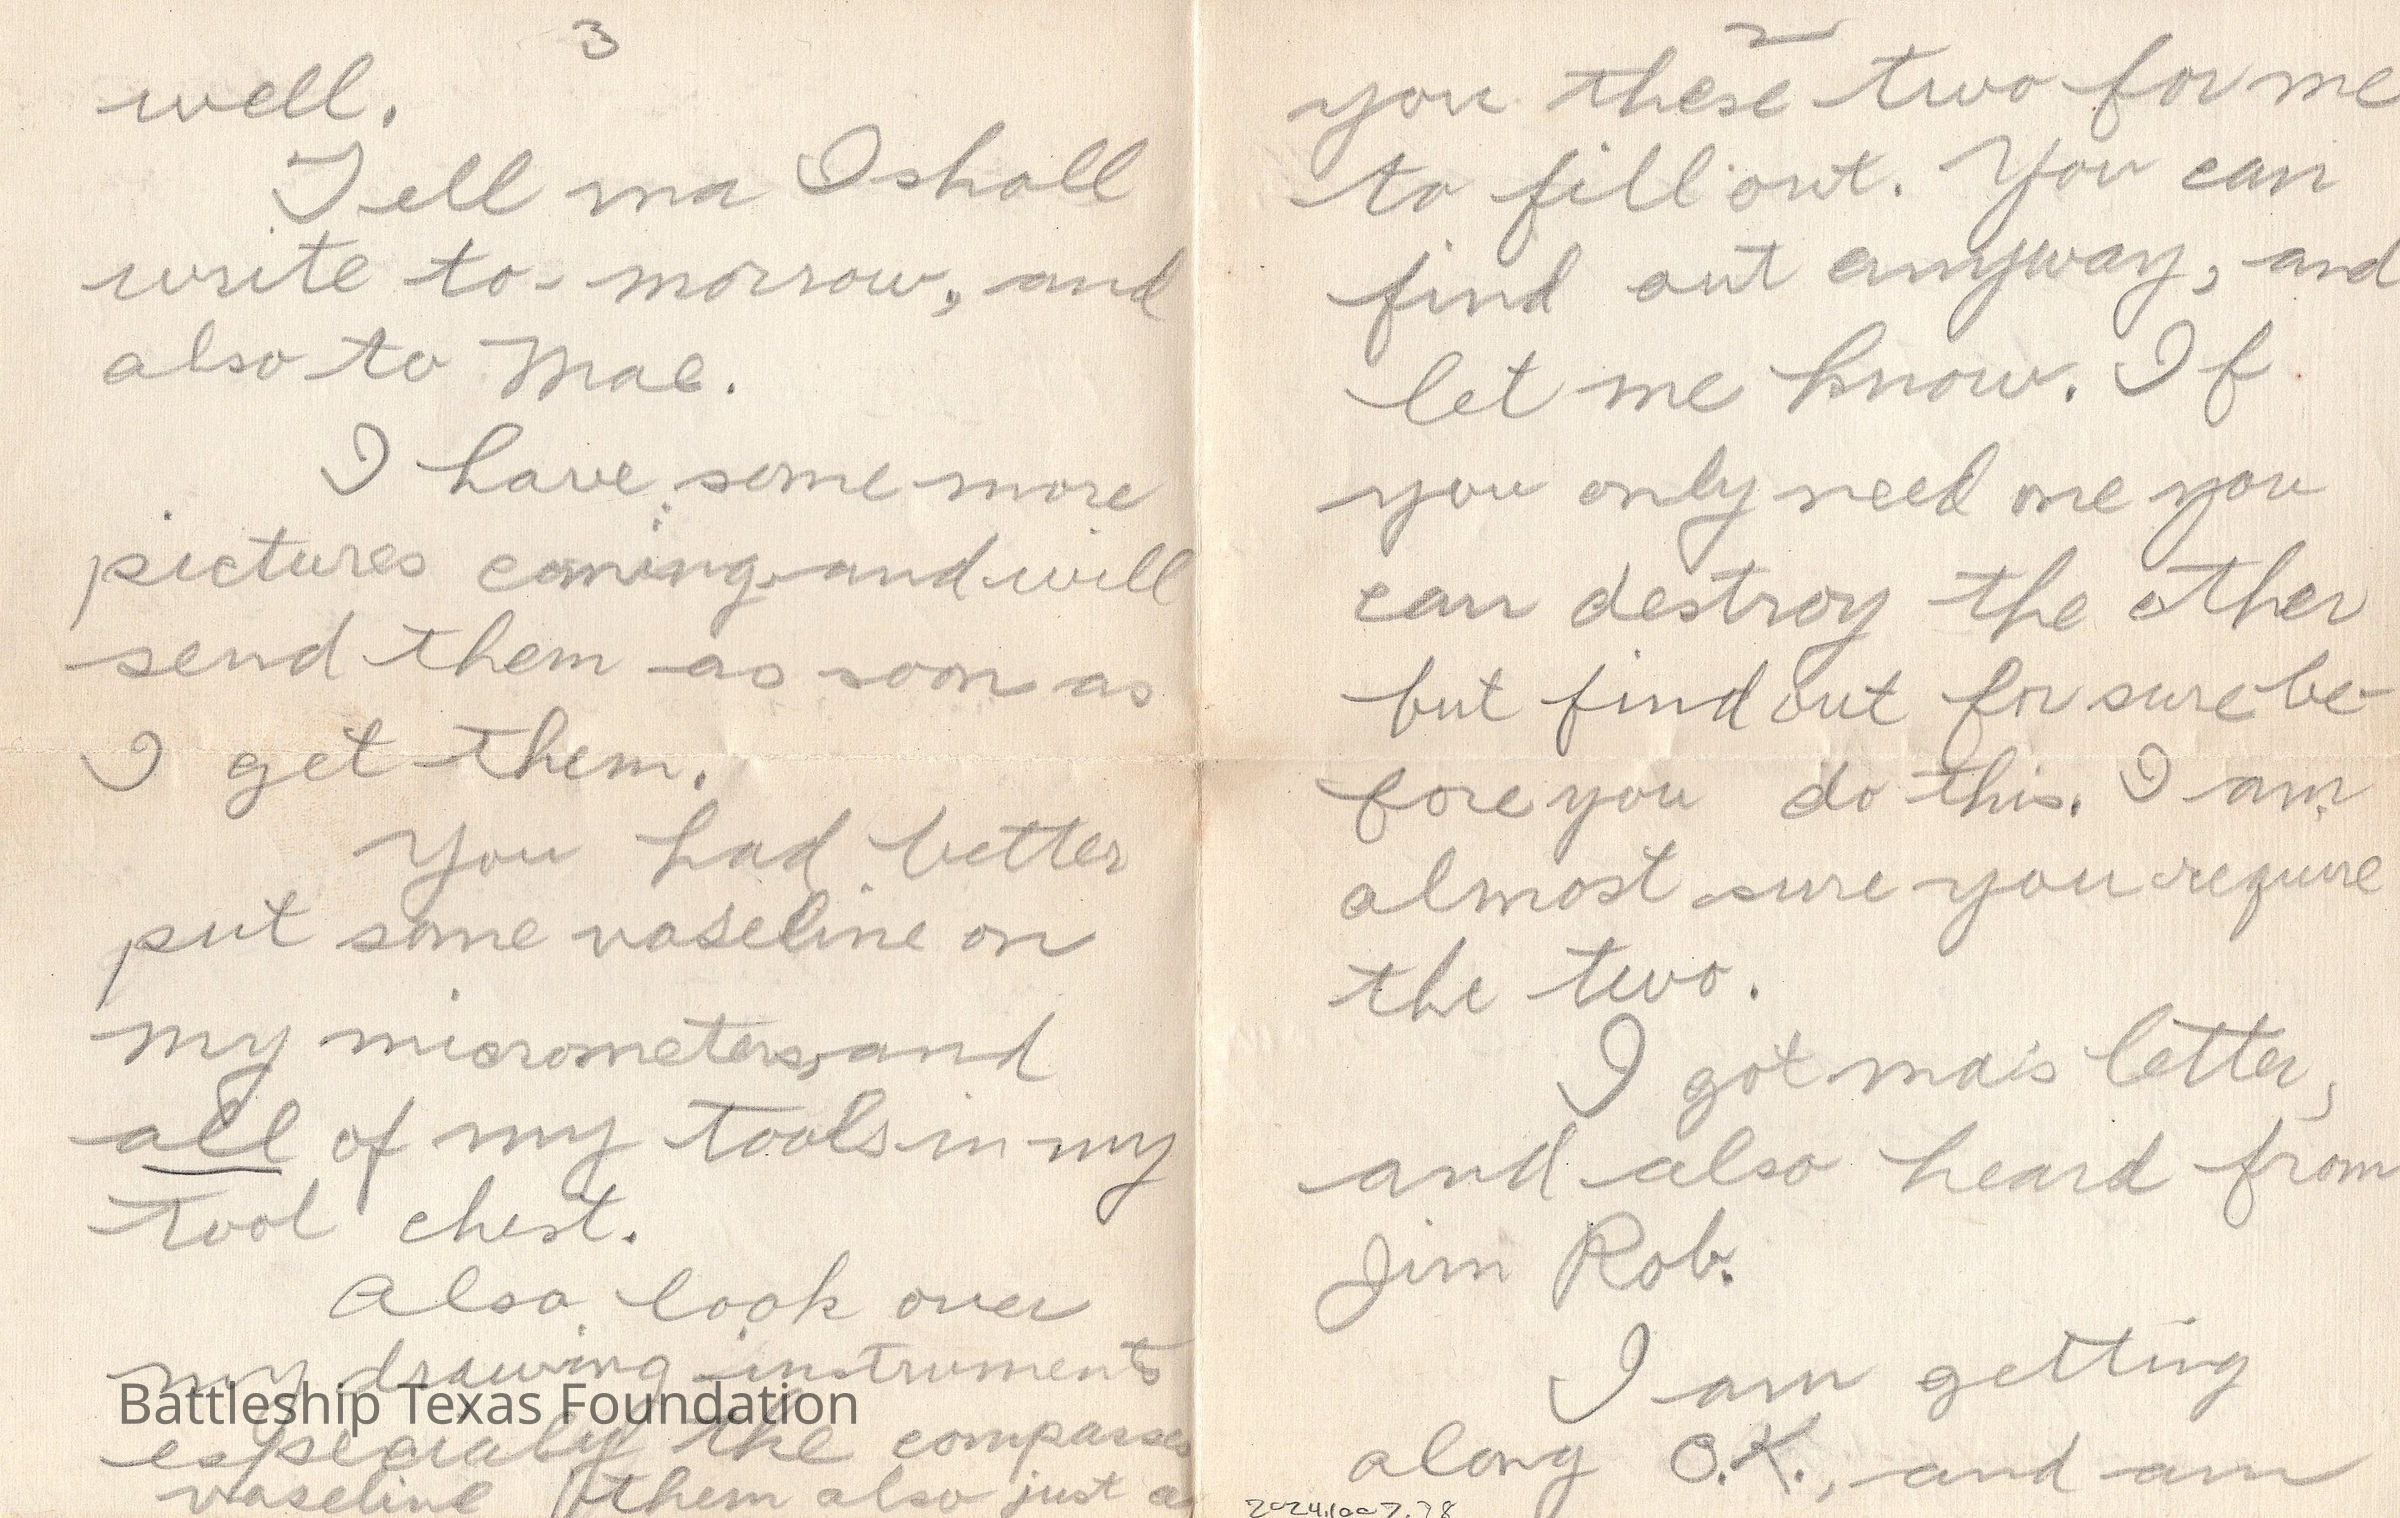 2
you these two for me
to fill out. You can
find out anyway, and
let me know. If
you only need one you
can destroy the other
but find out for sure be-
fore you do this. I am
almost sure you require
the two.
I got ma's letter,
and also heard from
Jim Rob.
I am getting
along O.K., and am
3
well.
Tell ma I shall
write to-morrow, and
also to Mae.
I have some more
pictures coming and will
send them as soon as
I get them.
You had better
put some vaseline on
my micrometers, and
all of my tools in my
tool chest.
Also look over
my drawing instruments
especialy the compasses
vaseline them also just as
Battleship Texas Foundation